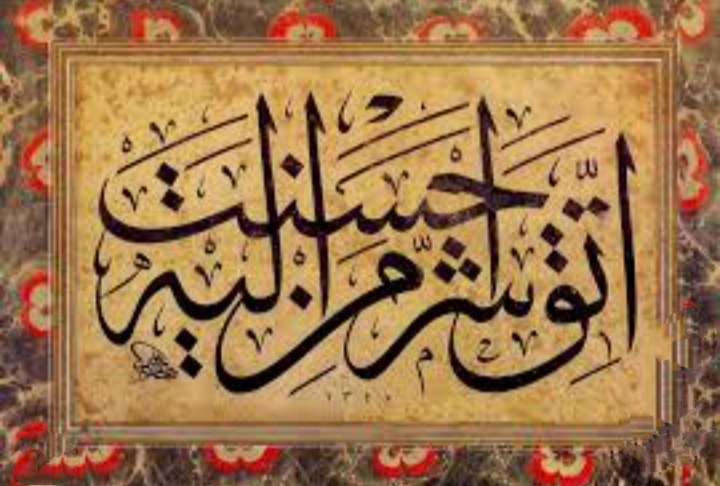 اتق شر من احسنت اليه
١٣٢٠